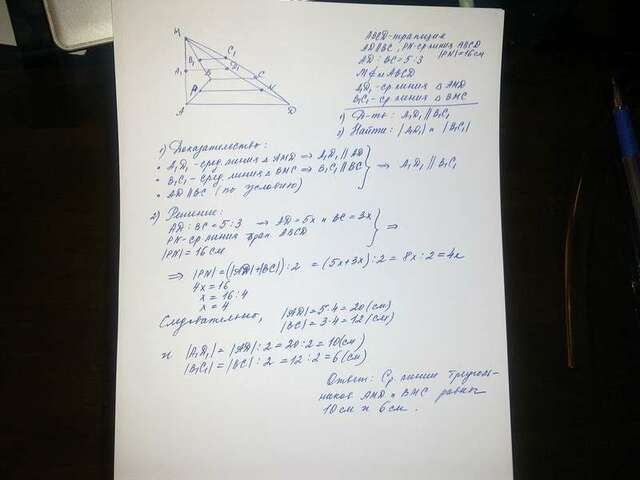 M
C₁
B₁
D₁
A₁
B
C
P
N
A
D
ABCD - трапеция
AD ∥ BC, PN - ср. линия ABCD
|PN| = 16 см
AD : BC = 5 : 3
M ∉ пл ABCD
A₁D₁ - ср. линия △ AMD
B₁C₁ - ср. линия △ BMC
1) Д-ть: A₁D₁ ∥ B₁C₁
2) Найти: |A₁D₁| и |B₁C₁|
1) Доказательство:
• A₁D₁ - сред. линия △ AMD ⇒ A₁D₁ ∥ AD
• B₁C₁ - сред. линия △ BMC ⇒ B₁C₁ ∥ BC } → A₁D₁ ∥ B₁C₁
• AD ∥ BC (по условию)
2) Решение:
AD : BC = 5 : 3 → AD = 5x и BC = 3x
PN - ср линия трап. ABCD } ⇒
|PN| = 16 см
⇒ |PN| = (|AD| + |BC|) : 2 = (5x + 3x) : 2 = 8x : 2 = 4x
4x = 16
x = 16 : 4
x = 4
Следовательно, |AD| = 5 · 4 = 20 (см)
|BC| = 3 · 4 = 12 (см)
и |A₁D₁| = |AD| : 2 = 20 : 2 = 10 (см)
|B₁C₁| = |BC| : 2 = 12 : 2 = 6 (см)
Ответ: Ср. линии треуголь-
ников AMD и BMC равны
10 см и 6 см.